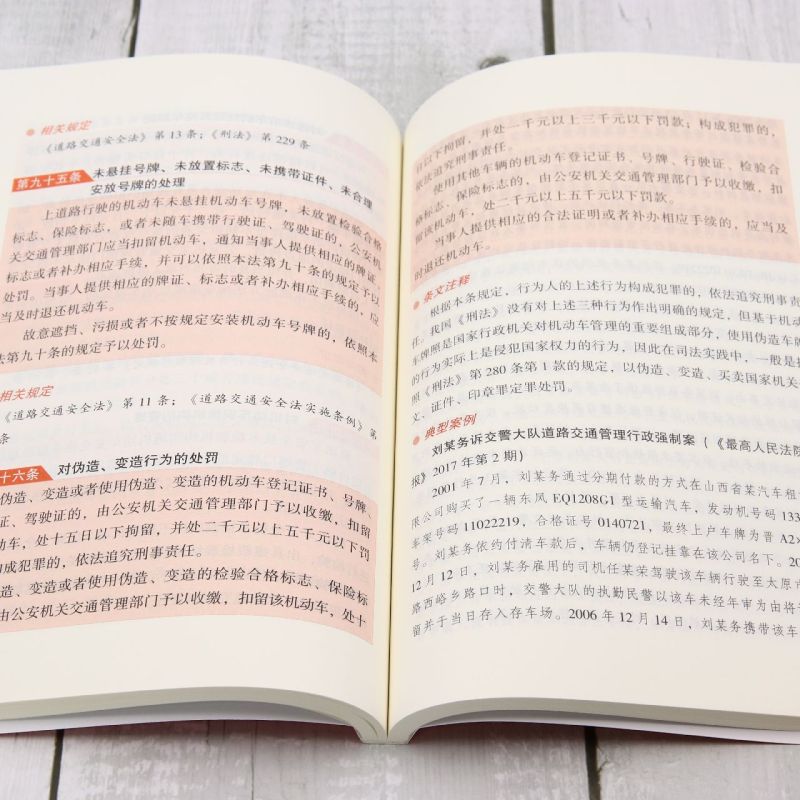 相关规定
《道路交通安全法》第13条；《刑法》第229条
第九十五条 未悬挂号牌、未放置标志、未携带证件、未合理
安放号牌的处理
上道路行驶的机动车未悬挂机动车号牌，未放置检验合格
标志、保险标志，或者未随车携带行驶证、驾驶证的，公安机
关交通管理部门应当扣留机动车，通知当事人提供相应的牌证、
标志或者补办相应手续，并可以依照本法第九十条的规定予以
处罚。当事人提供相应的牌证、标志或者补办相应手续的，应
当及时退还机动车。
故意遮挡、污损或者不按规定安装机动车号牌的，依照本
法第九十条的规定予以处罚。
相关规定
《道路交通安全法》第11条；《道路交通安全法实施条例》第
条
十六条 对伪造、变造行为的处罚
伪造、变造或者使用伪造、变造的机动车登记证书、号牌、
证、驾驶证的，由公安机关交通管理部门予以收缴，扣留
动车，处十五日以下拘留，并处二千元以上五千元以下罚
构成犯罪的，依法追究刑事责任。
伪造、变造或者使用伪造、变造的检验合格标志、保险标
由公安机关交通管理部门予以收缴，扣留该机动车，处十
日以下拘留，并处一千元以上三千元以下罚款；构成犯罪的，
依法追究刑事责任。
使用其他车辆的机动车登记证书、号牌、行驶证、检验合
格标志、保险标志的，由公安机关交通管理部门予以收缴，扣
留该机动车，处二千元以上五千元以下罚款。
当事人提供相应的合法证明或者补办相应手续的，应当及
时退还机动车。
条文注释
根据本条规定，行为人的上述行为构成犯罪的，依法追究刑事责
任。我国《刑法》没有对上述三种行为作出明确的规定，但基于机动
车牌照是国家行政机关对机动车管理的重要组成部分，使用伪造车牌
的行为实际上是侵犯国家权力的行为，因此在司法实践中，一般是按
照《刑法》第280条第1款的规定，以伪造、变造、买卖国家机关公
文、证件、印章罪定罪处罚。
典型案例
刘某务诉交警大队道路交通管理行政强制案（《最高人民法院
报》2017年第2期）
2001年7月，刘某务通过分期付款的方式在山西省某汽车租
限公司购买了一辆东风EQ1208G1型运输汽车，发动机号码133
车架号码11022219，合格证号0140721，最终上户车牌为晋A2×
号。刘某务依约付清车款后，车辆仍登记挂靠在该公司名下。20
12月12日，刘某务雇用的司机任某荣驾驶该车辆行驶至太原市
路西峪乡路口时，交警大队的执勤民警以该车未经年审为由将
留并于当日存入存车场。2006年12月14日，刘某务携带该车